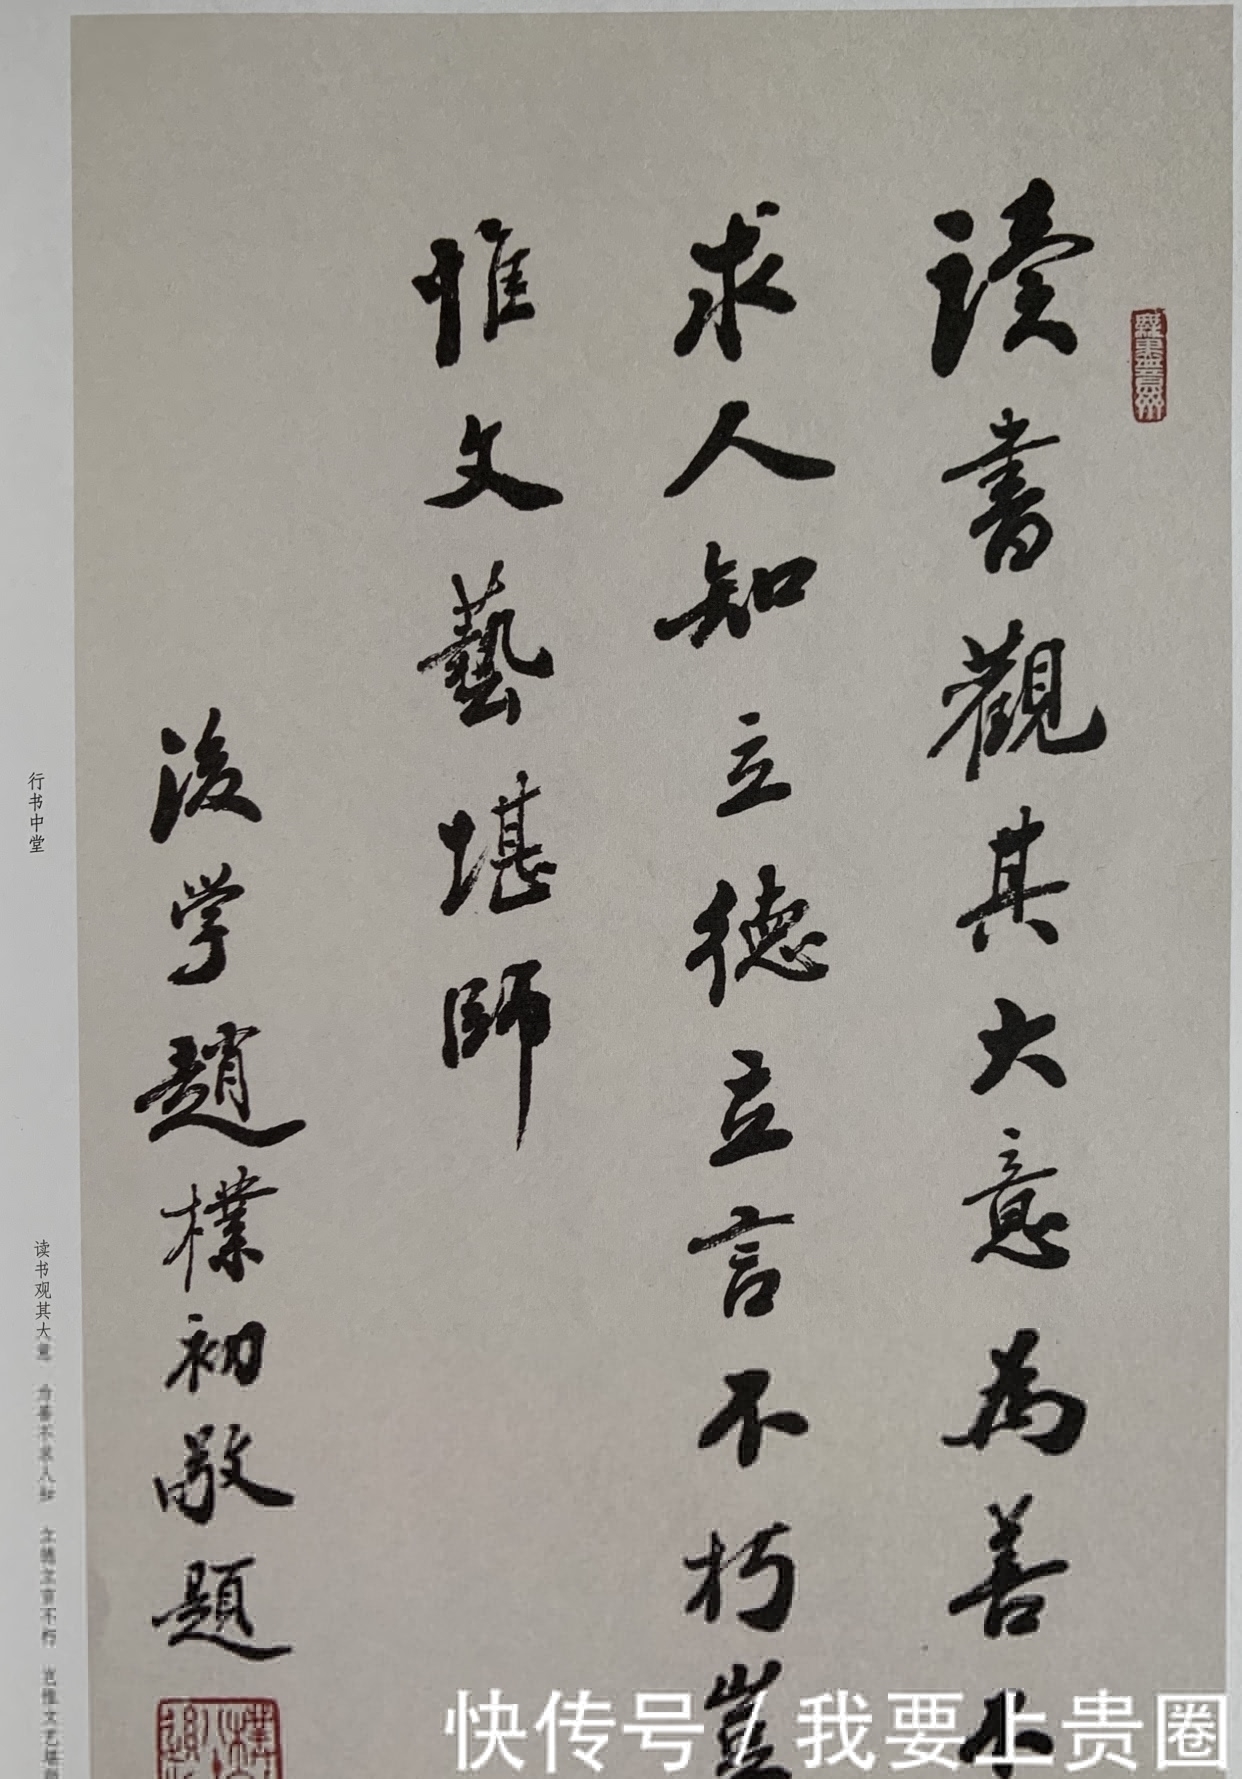 读書觀其大意為善不
求人知立德立言不朽豈
惟文藝堪師
後学趙樸初敬題
行书中堂
读书观其大意 为善不求人知 立德立言不朽 岂惟文艺堪
快传号 / 我要上贵圈